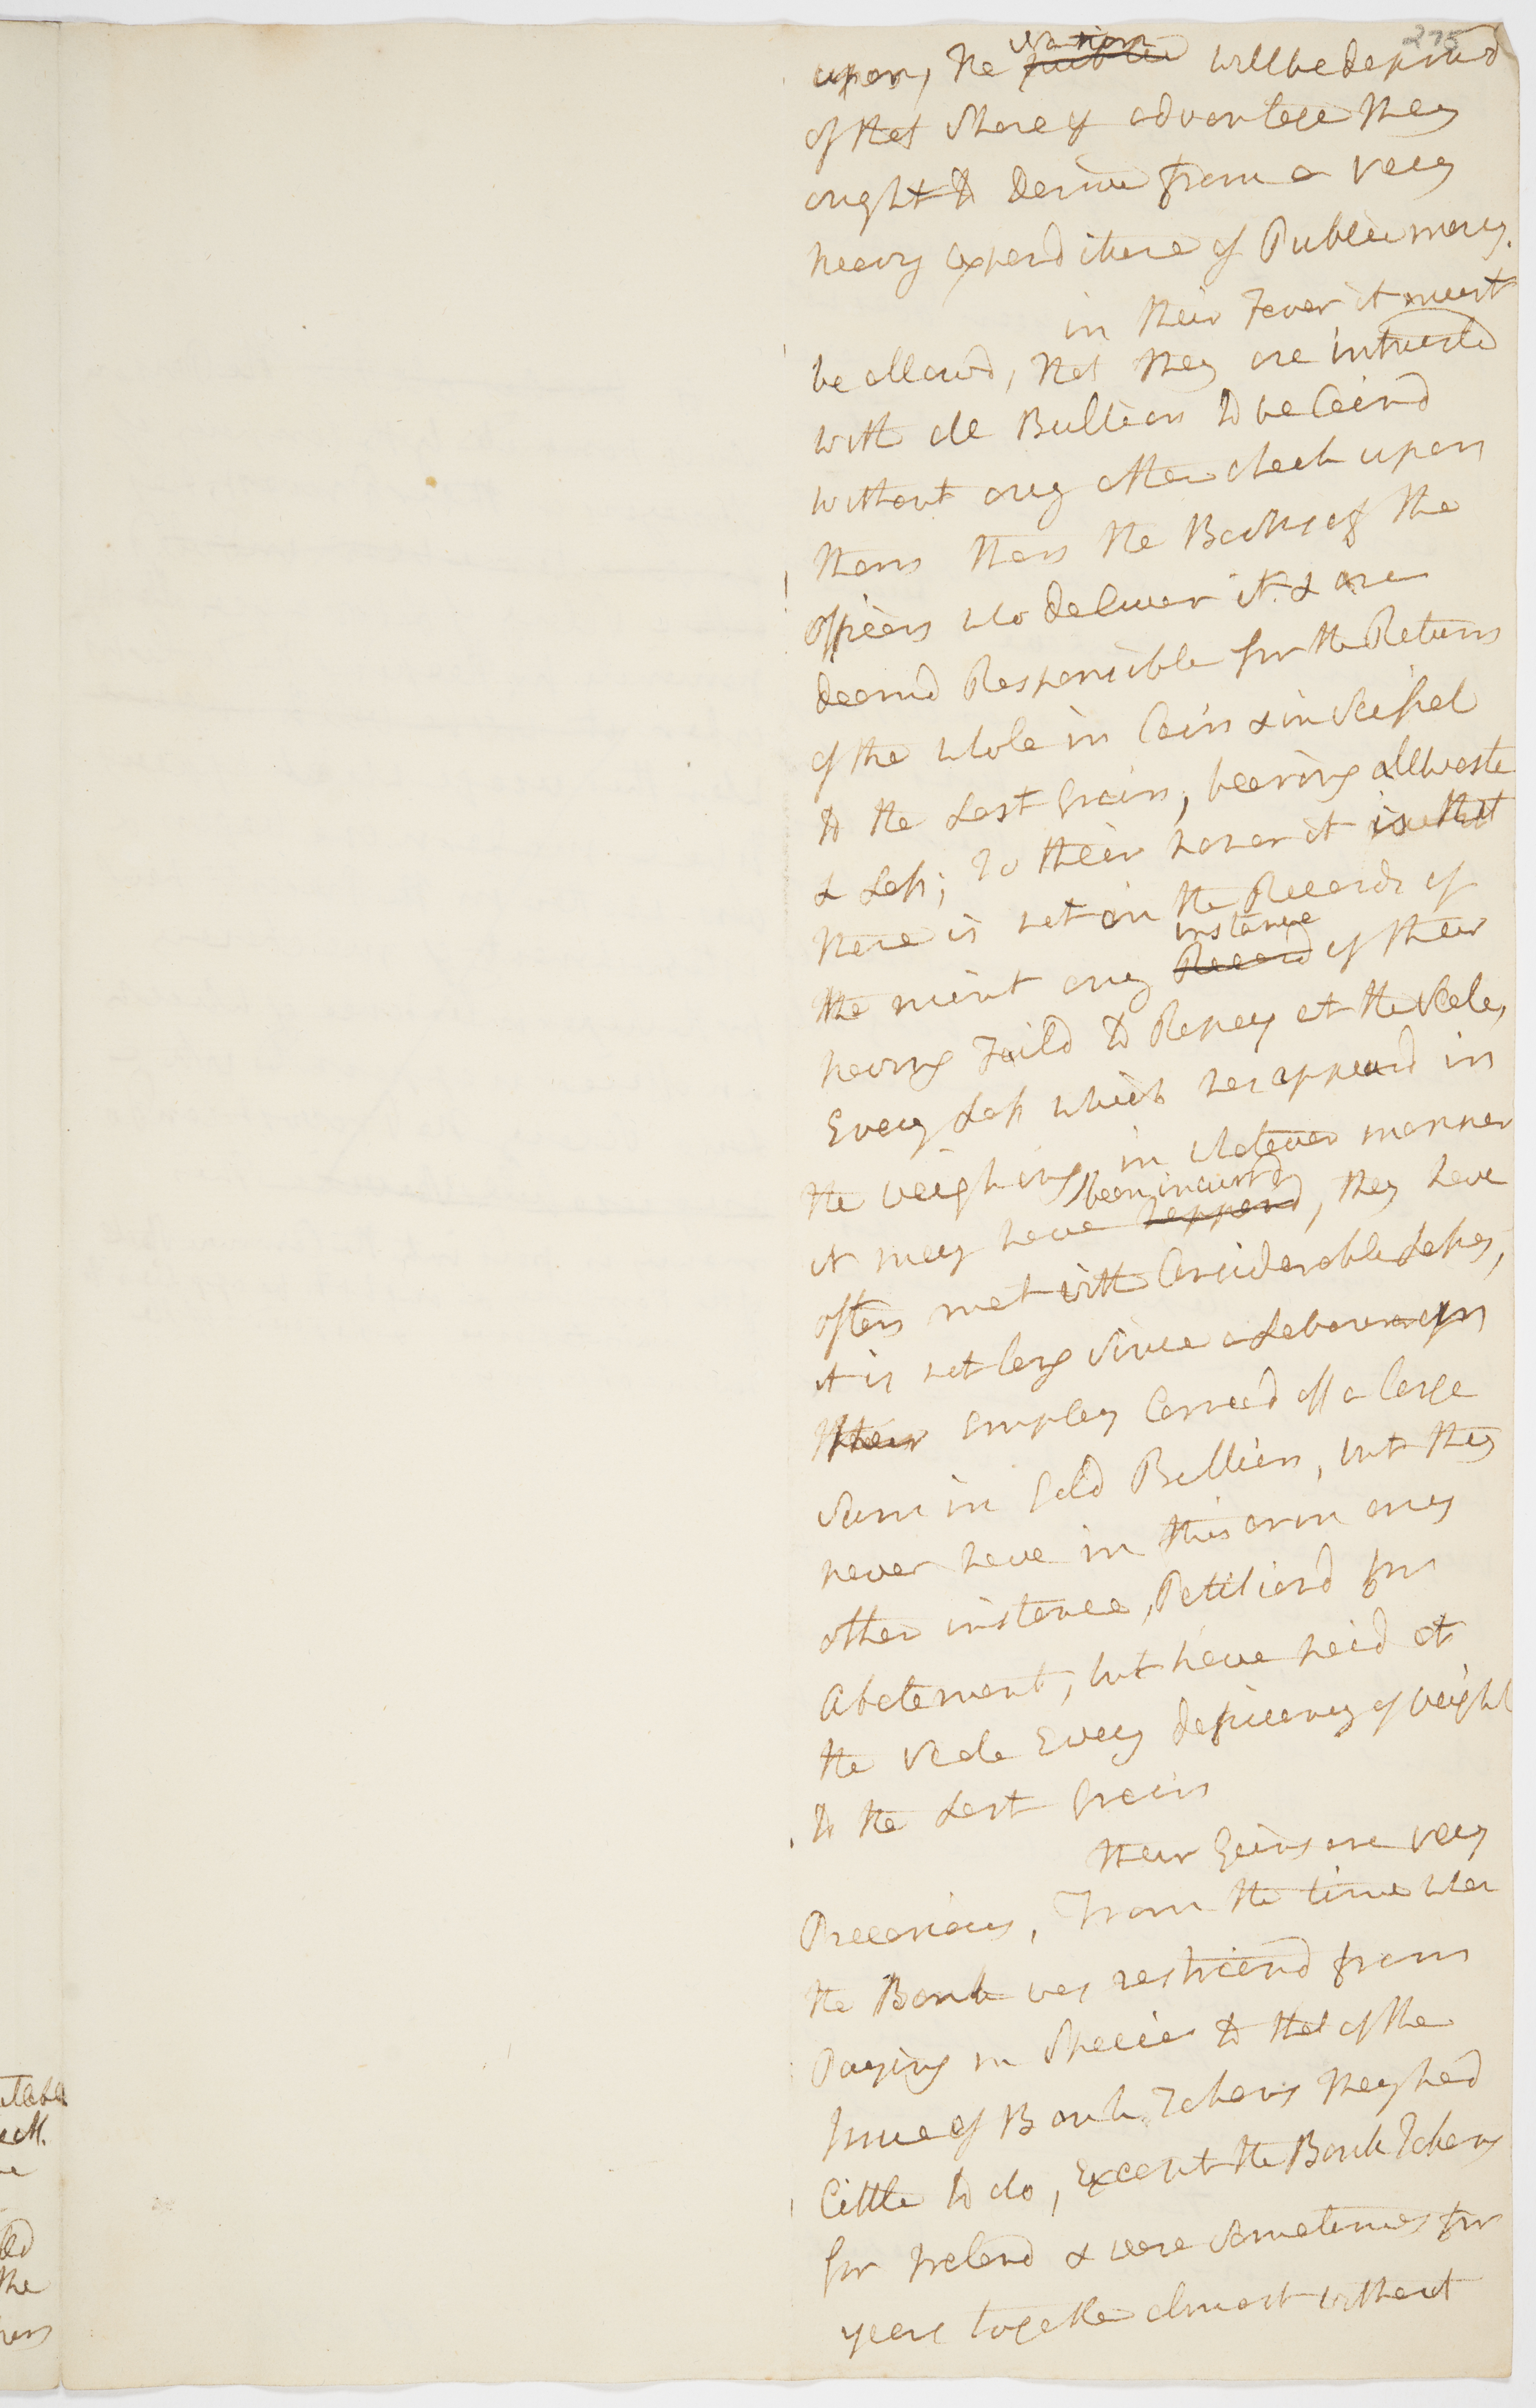 275
nation
upon, the public will be deprivd
of that share of advantage they
ought to derive from a very
heavy expenditure of Public money.
in their Favor it must
be allowd, that they are intrusted
with all Bullion to be Coind
without any other check upon
them than the Books of the
officers who deliver it & are
deemd Responsible for the Return
of the whole in Coin & in Scissel
to the Last Grain, bearing all waste
& Loss; To their honor it is that
there is not on the Records of
instance
the mint any Record of their
having Faild to Repay at the Scale,
Every Loss which has appeard in
the weighing, in whatever manner
been incurrd
it may have happend, they have
often met with Considerable Losses,
it is not long since a Laborer in
their employ Carried off a large
Sum in Gold Bullion, but they
never have in this or in any
other instance, Petitiond for
Abatement, but have paid at
the Scale Every deficiency of weight
to the Last Grain
their Gains are very
Precarious, From the time when
the Bank was restraind from
Paying in Specie to that of the
Issue of Bank Tokens they had
Little to do, Except the Bank Tokens
for Ireland & were sometimes for
years together almost without